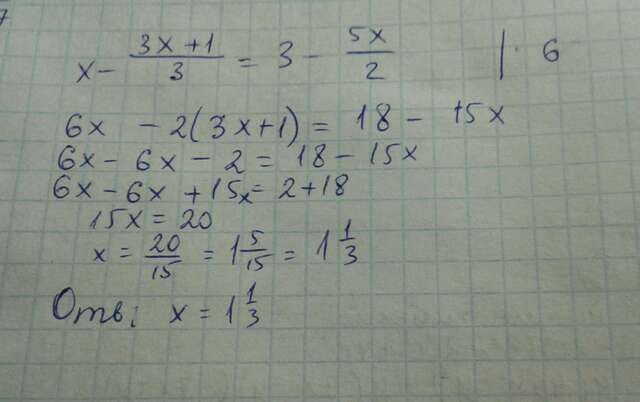 x - \frac{3x+1}{3} = 3 - \frac{5x}{2} | · 6
6x - 2(3x+1) = 18 - 15x
6x - 6x - 2 = 18 - 15x
6x - 6x + 15x = 2 + 18
15x = 20
x = \frac{20}{15} = 1\frac{5}{15} = 1\frac{1}{3}
Отв: x = 1\frac{1}{3}